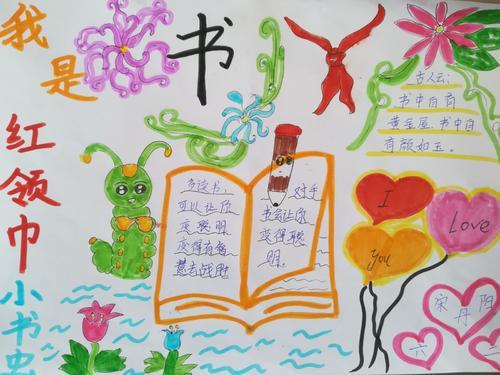 我是
书
红领巾
小书虫
古人云:
书中自有
黄金屋,书中自
有颜如玉。
多读书,
可以让你
变聪明
变得有智
慧去战胜
对手
书会让你
变得聪
明。
I
Love
You
宋丹阳
六
二